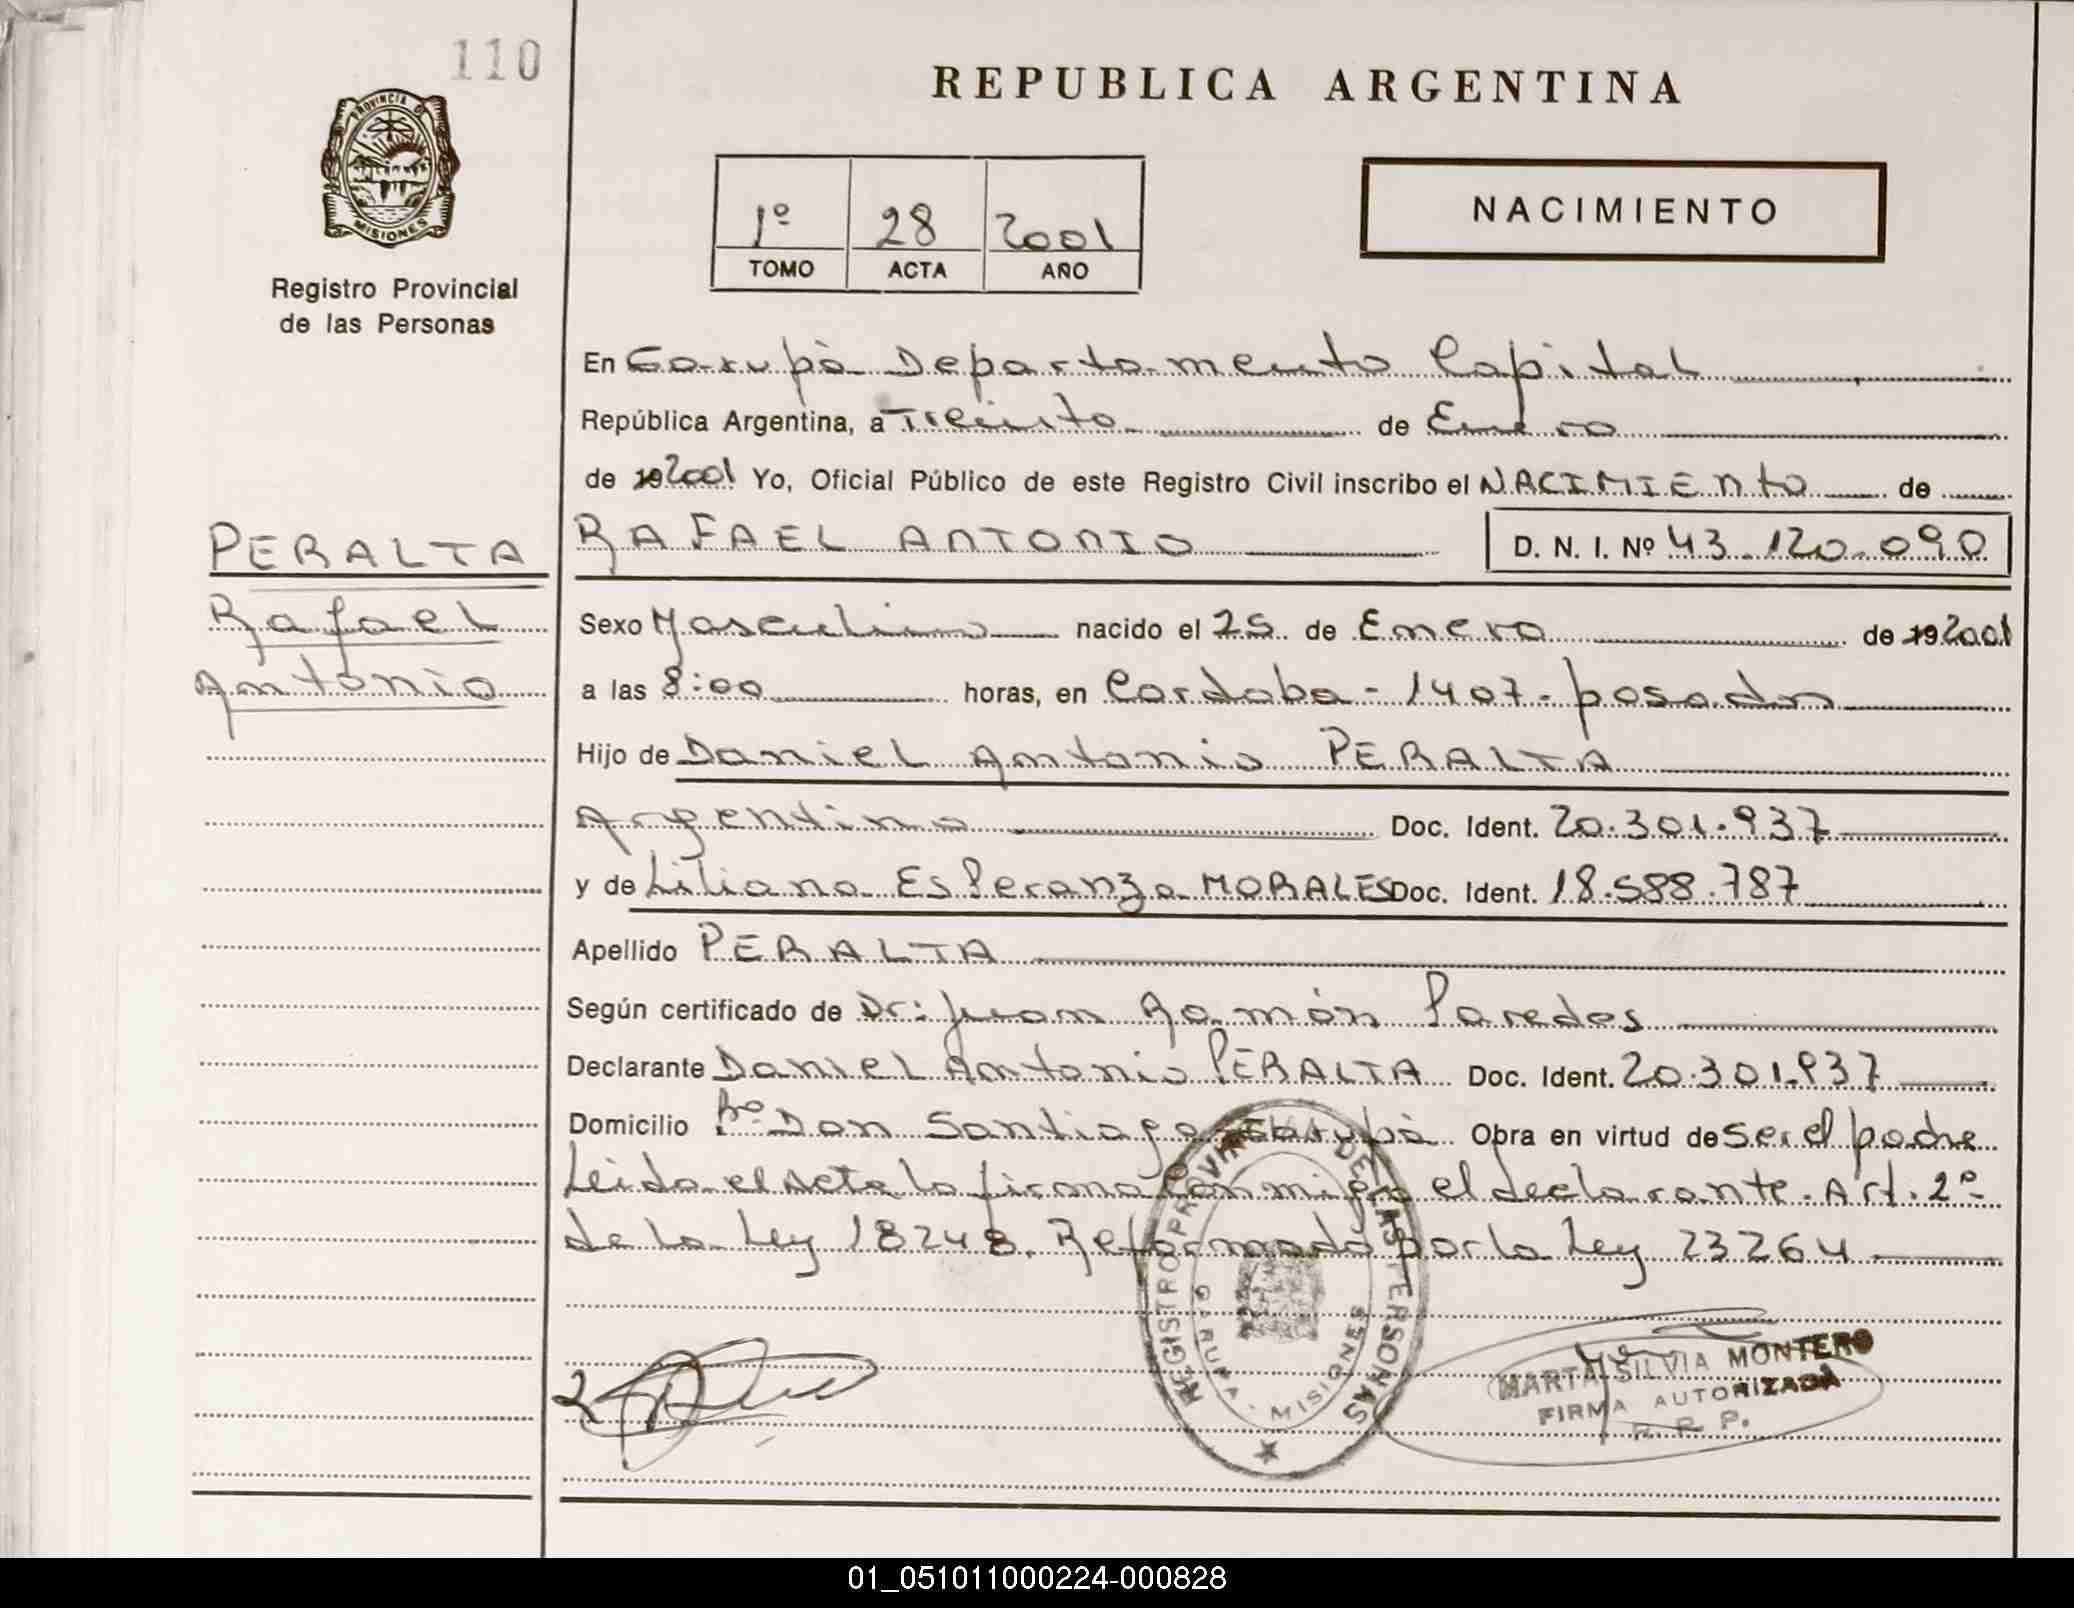 110
REPUBLICA ARGENTINA
PROVINCIA DE MISIONES
1º 28 2001
TOMO ACTA AÑO
NACIMIENTO
Registro Provincial
de las Personas
En Garupà Departamento Capital
República Argentina, a Treinta de Enero
de 19 2001 Yo, Oficial Público de este Registro Civil inscribo el NACIMIENTO de
PERALTA
Rafael
Antonio
RAFAEL ANTONIO D. N. I. Nº 43.120.090
Sexo Masculino nacido el 25 de Enero de 19 2001
a las 8:00 horas, en Cordoba - 1407 - posadas
Hijo de Daniel Antonio PERALTA
Argentino Doc. Ident. 20.301.937
y de Liliana Esperanza MORALES Doc. Ident. 18.588.787
Apellido PERALTA
Según certificado de Dr: Juan Ramón Paredes
Declarante Daniel Antonio PERALTA Doc. Ident. 20.301.937
Domicilio Bº Don Santiago Garupà Obra en virtud de ser el padre
Leida el Acta la firma conmigo el declarante. Art. 2º
de la Ley 18248. Reformado por la Ley 23264
REGISTRO PROVINCIAL DE LAS PERSONAS
GARUPA - MISIONES
MARTA SILVIA MONTERO
FIRMA AUTORIZADA
R. R. P.
01_051011000224-000828